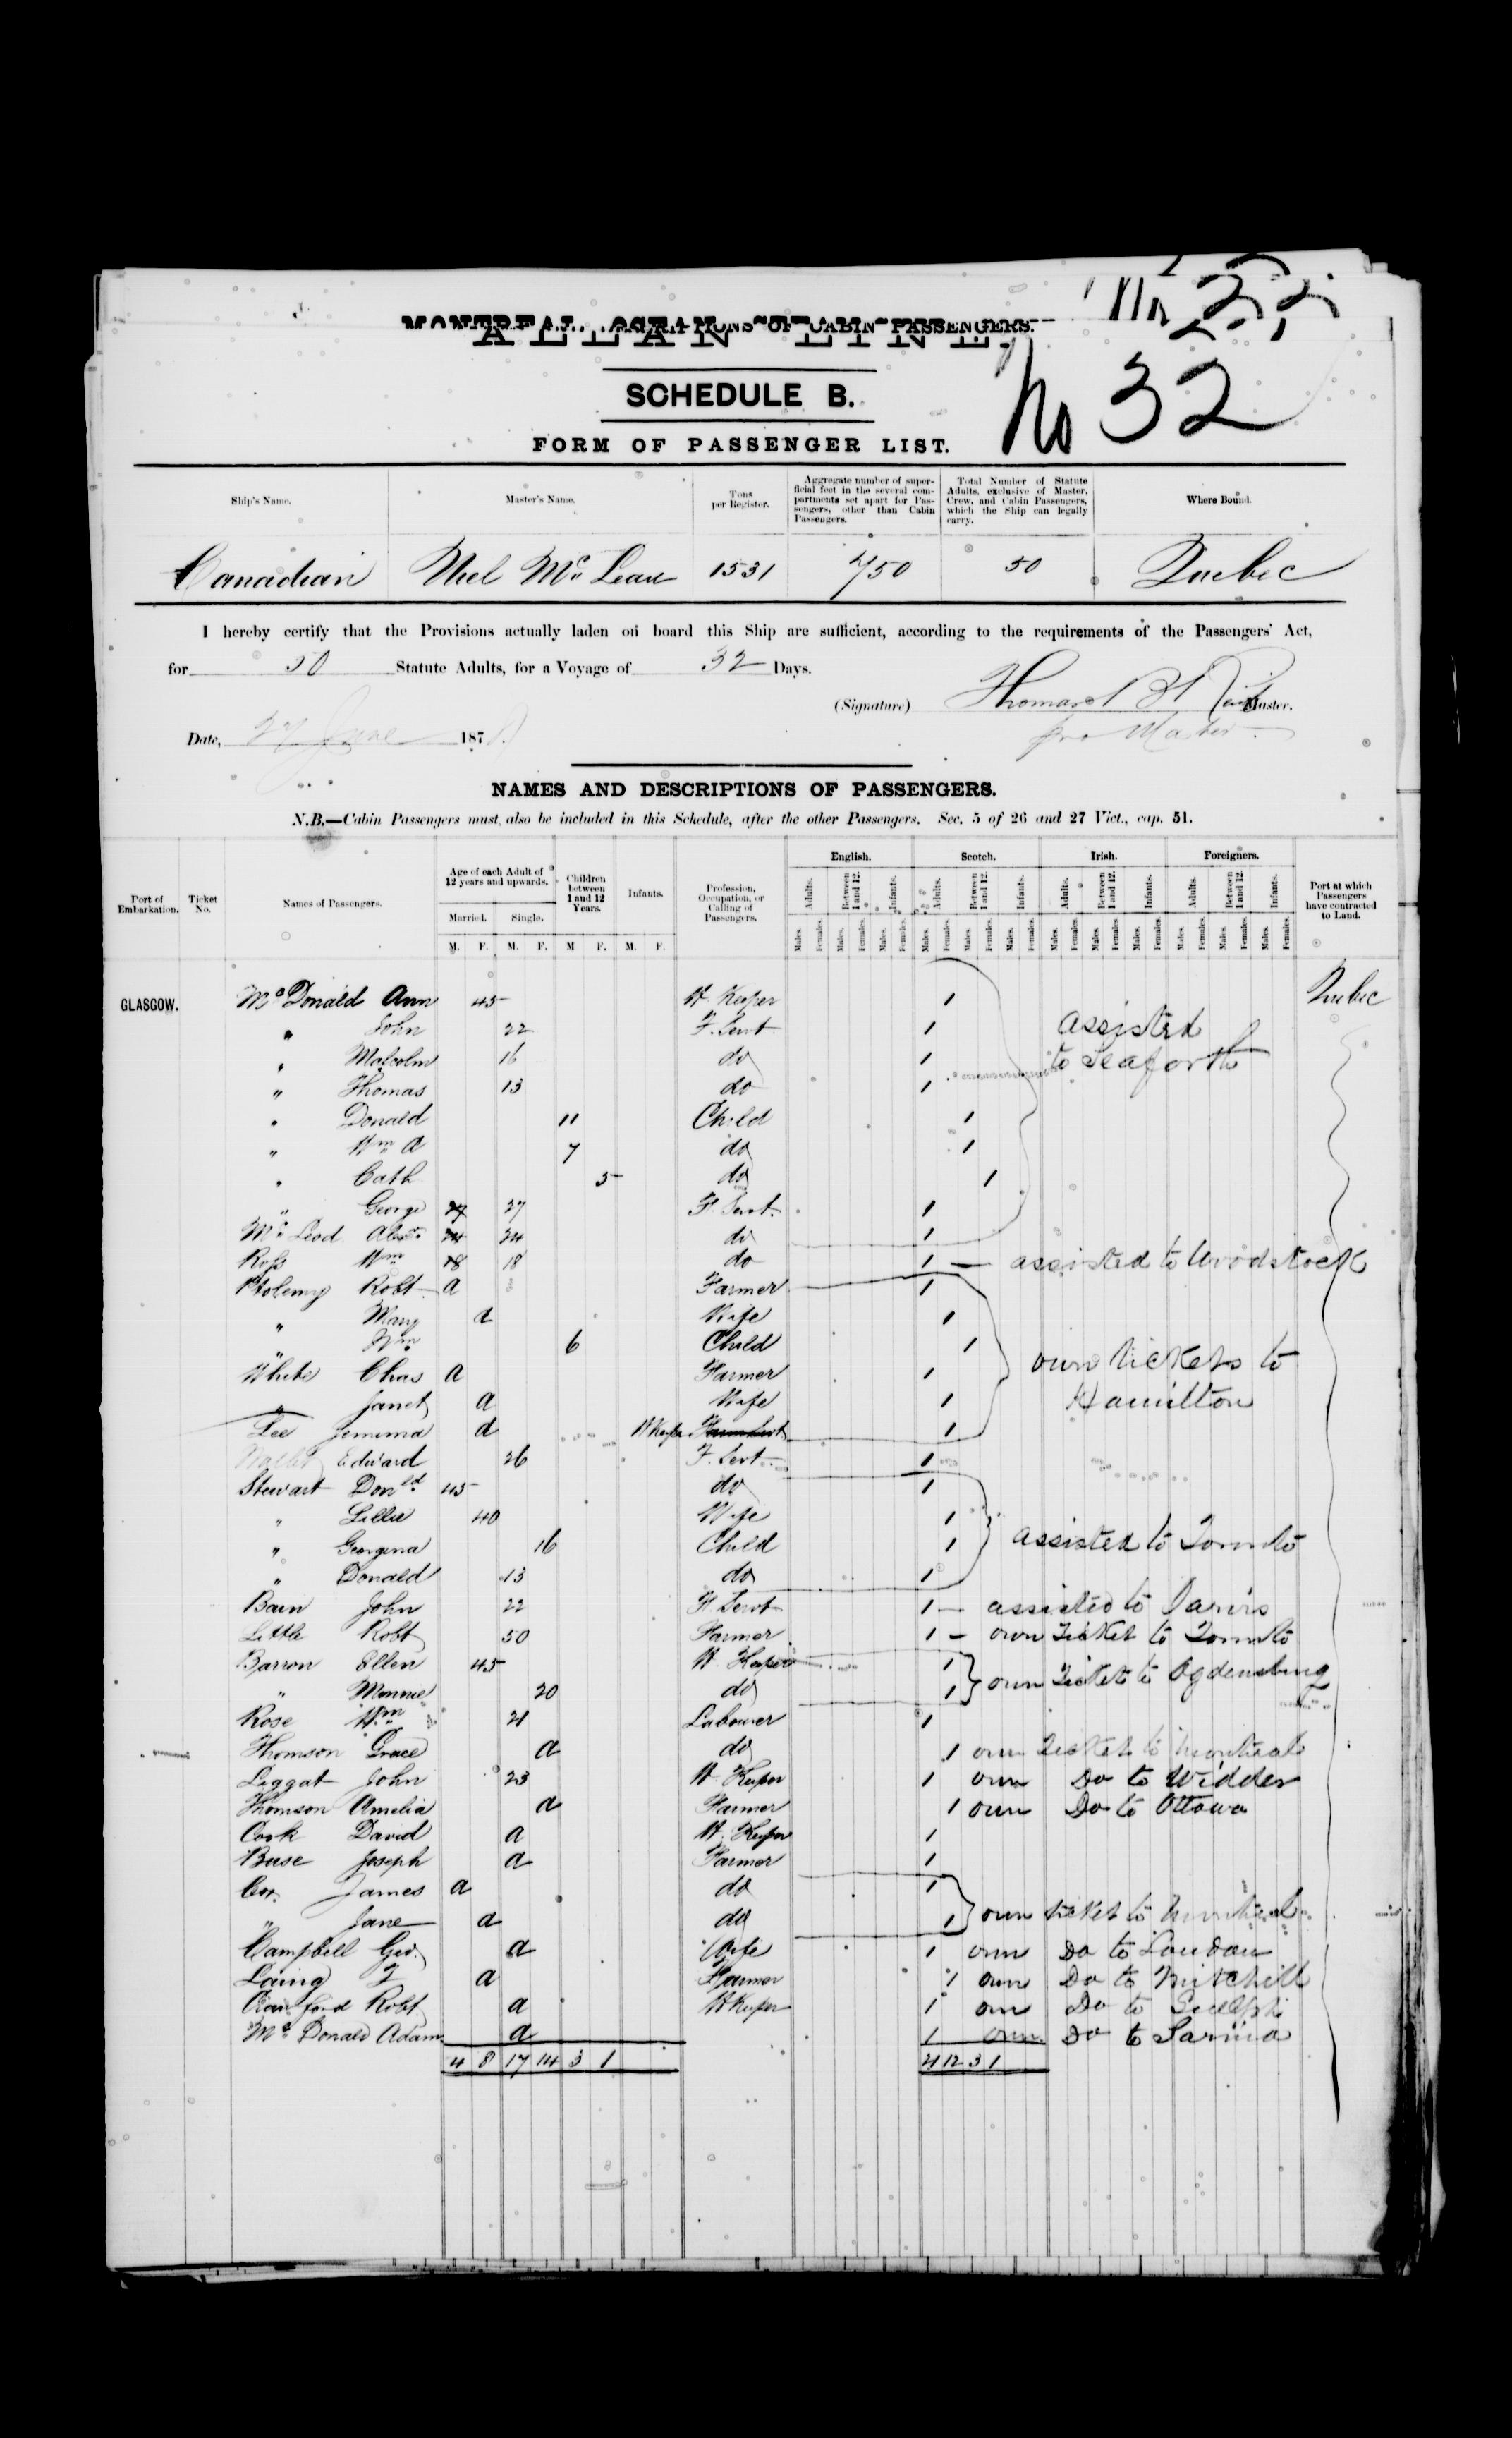 No 32
ALLAN LINE.
SCHEDULE B.
FORM OF PASSENGER LIST.
Ship's Name. Master's Name. Tons per Register. Aggregate number of superficial feet in the several compartments set apart for Passengers, other than Cabin Passengers. Total Number of Statute Adults, exclusive of Master, Crew, and Cabin Passengers, which the Ship can legally carry. Where Bound.
Canadian Neil McLean 1531 750 50 Quebec
I hereby certify that the Provisions actually laden on board this Ship are sufficient, according to the requirements of the Passengers' Act,
for 50 Statute Adults, for a Voyage of 32 Days.
(Signature) Thomas Master.
Date, 27 June 187 pro Master
NAMES AND DESCRIPTIONS OF PASSENGERS.
N.B.—Cabin Passengers must also be included in this Schedule, after the other Passengers. Sec. 5 of 26 and 27 Vict., cap. 51.
Port of Embarkation. Ticket No. Names of Passengers. Age of each Adult of 12 years and upwards. Married. Single. Children between 1 and 12 Years. Infants. Profession, Occupation, or Calling of Passengers. English. Scotch. Irish. Foreigners. Port at which Passengers have contracted to Land.
M. F. M. F. M F. M. F.
GLASGOW. McDonald Ann 45 H. Keeper 1 Quebec
" John 22 F. Servt 1 assisted
" Malcolm 16 do 1 to Seaforth
" Thomas 13 do 1
" Donald 11 Child 1
" Wm A 7 do 1
" Cath 5 do 1
" George 27 27 F. Servt. 1
McLeod Alexr 24 24 do 1
Ross Wm 18 18 do 1 — assisted to Woodstock
Ptolemy Robt a Farmer 1
" Mary a Wife 1
" Wm 6 Child 1 own tickets to
White Chas a Farmer 1 Hamilton
" Janet a Wife 1
Lee Jemima a H Keeper 1
Edward 26 F. Servt 1
Stewart Donld 45 do 1
" Lillie 40 Wife 1
" Georgina 16 Child 1 assisted to Toronto
" Donald 13 do 1
Bain John 22 F. Servt 1 — assisted to Paris
Little Robt 50 Farmer 1 — own Ticket to Toronto
Barron Ellen 45 H. Keeper 1 own Tickets to Ogdensburg
" Minnie 20 do 1
Rose Wm 21 Labourer 1
Thomson Grace a do 1 own Ticket to Montreal
Liggat John 23 H. Keeper 1 own Do to Widder
Thomson Amelia a Farmer 1 own Do to Ottawa
Cook David a H. Keeper 1
Buse Joseph a Farmer 1
Cox James a do 1
" Jane a do 1 own ticket to Montreal
Campbell Geo. a Wife 1 own Do to London
Laing a Farmer 1 own Do to Mitchell
Crawford Robt a H Keeper 1 own Do to Guelph
McDonald Adam a 1 own Do to Sarnia
4 8 17 14 3 1 21 12 3 1